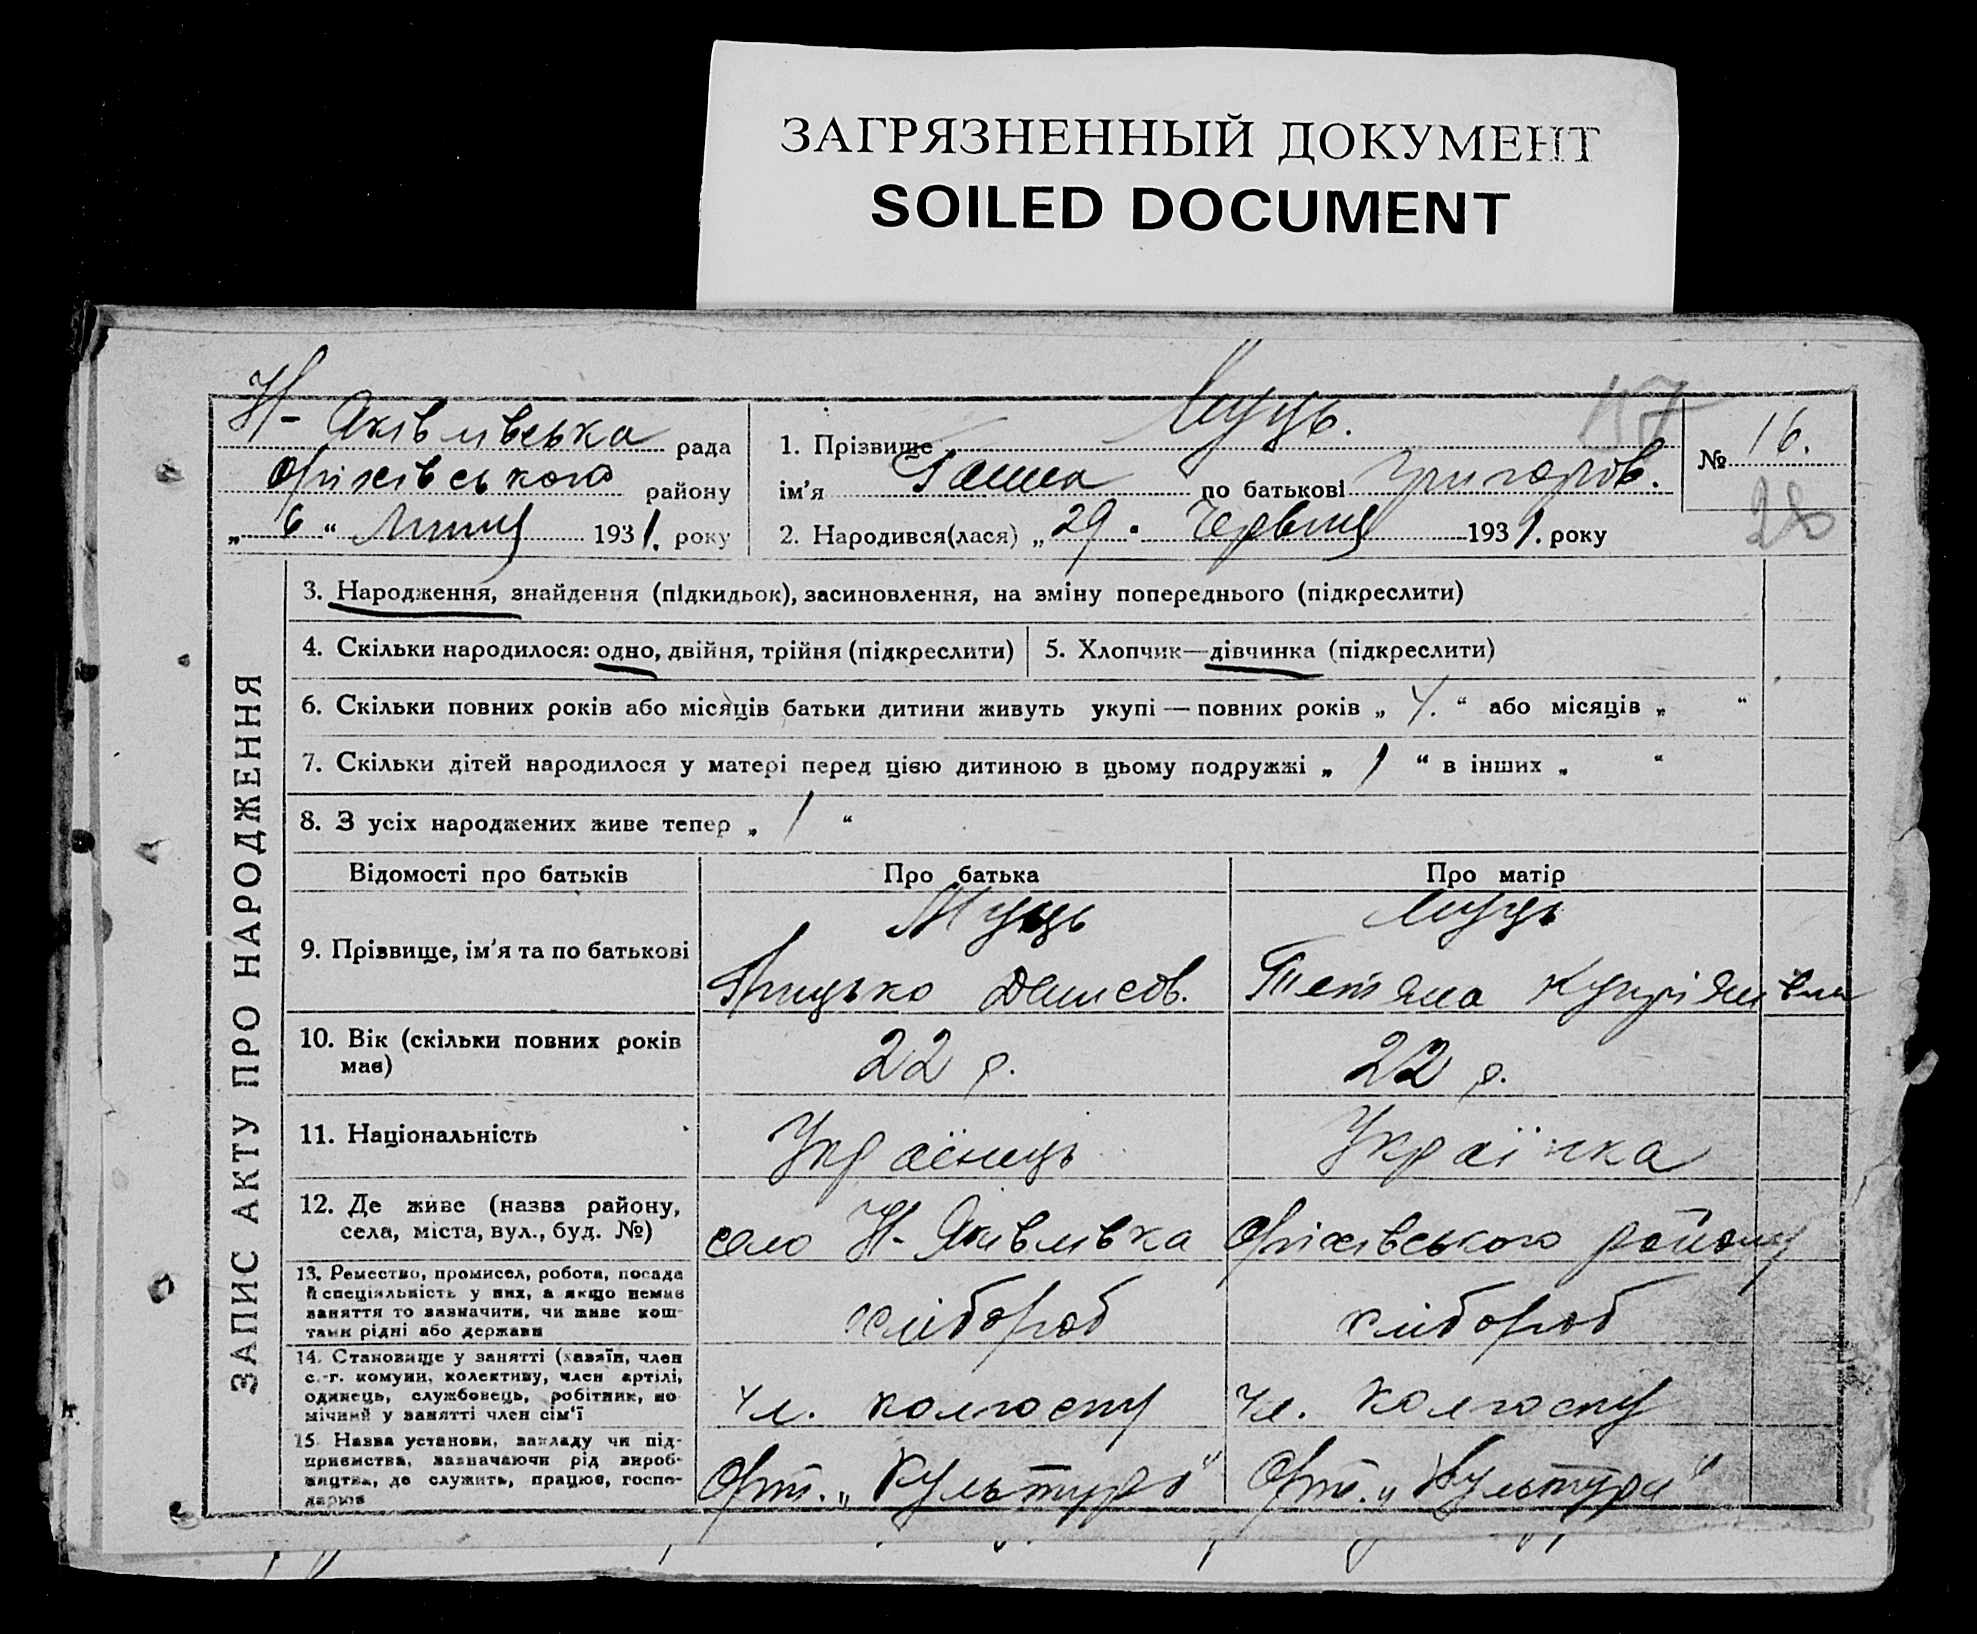 ЗАГРЯЗНЕННЫЙ ДОКУМЕНТ
SOILED DOCUMENT
Н-Яківлівська рада
Оріхівського району
„ 6 “ Липня 1931. року
1. Прізвище Муць.
ім'я Ганна по батькові Григоров.
2. Народився(лася) „ 29. Червня 1931. року
№ 16.
28
ЗАПИС АКТУ ПРО НАРОДЖЕННЯ
3. Народження, знайдення (підкидьок), засиновлення, на зміну попереднього (підкреслити)
4. Скільки народилося: одно, двійня, трійня (підкреслити)
5. Хлопчик—дівчинка (підкреслити)
6. Скільки повних років або місяців батьки дитини живуть укупі — повних років „ 4. “ або місяців „ “
7. Скільки дітей народилося у матері перед цією дитиною в цьому подружжі „ 1 “ в інших „ “
8. З усіх народжених живе тепер „ 1 “
Відомості про батьків
Про батька
Про матір
9. Прізвище, ім'я та по батькові
Муць
Грицько Денисов.
Муць
Тетяна Купріянівна
10. Вік (скільки повних років
має)
22 р.
22 р.
11. Національність
Українець
Українка
12. Де живе (назва району,
села, міста, вул., буд. №)
село Н-Яківлівка Оріхівського району
13. Ремество, промисел, робота, посада
й спеціяльність у них, а якщо немає
заняття то зазначити, чи живе кош-
тами рідні або держави
хлібороб
хлібороб
14. Становище у занятті (хазяїн, член
с.-г. комуни, колективу, член артілі,
одинець, службовець, робітник, по
мічний у занятті член сім'ї
чл. колгоспу
чл. колгоспу
15. Назва установи, закладу чи під-
приємства, зазначаючи рід вироб-
ництва, де служить, працює, госпо-
дарює
Арт. „Культура“
Арт. „Культура“